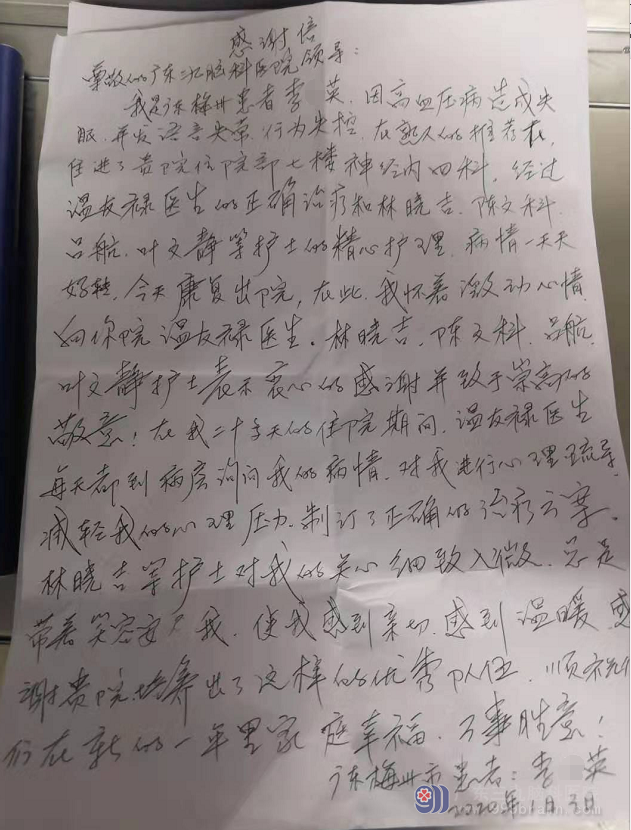 感谢信
尊敬的广东三九脑科医院领导：
我是广东梅州患者李英，因高血压病造成失
眠，并发语言失常，行为失控，在熟人的推荐下，
住进了贵院住院部七楼神经内四科，经过
温友禄医生的正确治疗和林晓吉、陈文科、
吕航、叶文静等护士的精心护理，病情一天天
好转，今天康复出院，在此，我怀着激动心情
向你院温友禄医生、林晓吉、陈文科、吕航、
叶文静护士表示衷心的感谢并致于崇高的
敬意！在我二十多天的住院期间，温友禄医生
每天都到病房询问我的病情，对我进行心理疏导，
减轻我的心理压力，制订了正确的治疗方案，
林晓吉等护士对我的关心细致入微，总是
带着笑容安慰我，使我感到亲切，感到温暖，感
谢贵院培养出了这样的优秀队伍，顺祝你
们在新的一年里家庭幸福，万事胜意！
广东梅州市患者：李英
2020年1月3日